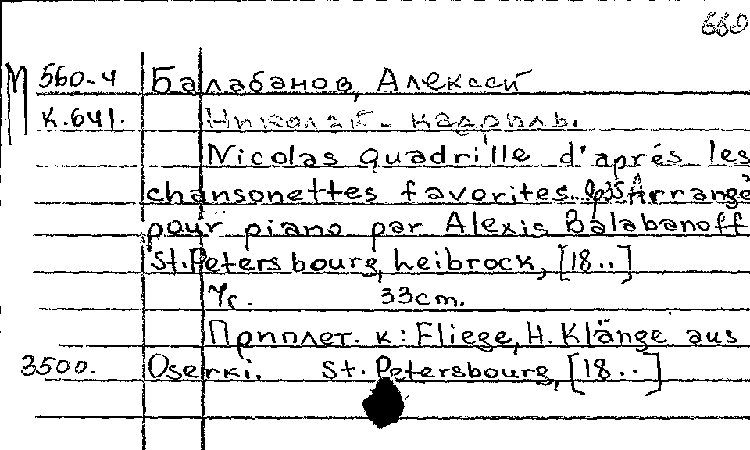 660
М 560-4 Балабанов, Алексей
К.641. Николай - кадриль.
Nicolas quadrille d'aprés les
chansonettes favorites. Op35 Arrangé
pour piano par Alexis Balabanoff
St.Petersbourg, Leibrock, [18..]
7с. 33cm.
Приплет. к: Fliege, H. Klänge aus
3500. Oserki. St. Petersbourg, [18..]